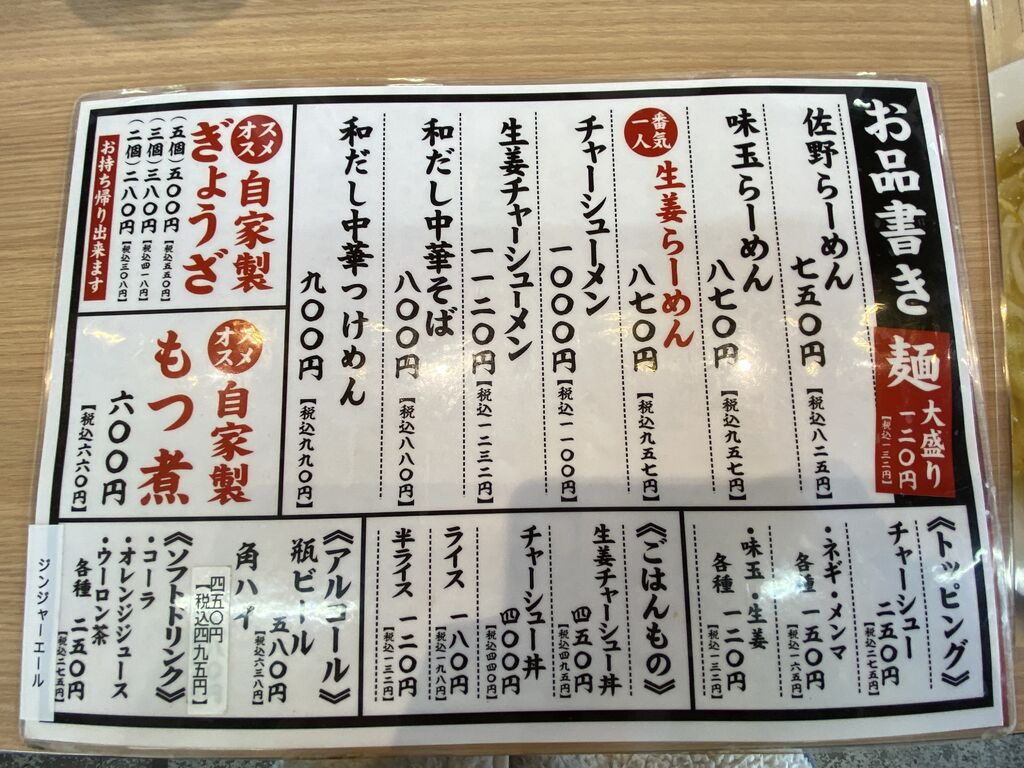 お品書き
麺
大盛り
一二〇円
【税込一三二円】
佐野らーめん
七五〇円【税込八二五円】
味玉らーめん
八七〇円【税込九五七円】
一番人気
生姜らーめん
八七〇円【税込九五七円】
チャーシューメン
一〇〇〇円【税込一一〇〇円】
生姜チャーシューメン
一一二〇円【税込一二三二円】
和だし中華そば
八〇〇円【税込八八〇円】
和だし中華つけめん
九〇〇円【税込九九〇円】
オススメ
自家製
ぎょうざ
(五個)五〇〇円【税込五五〇円】
(三個)三八〇円【税込四一八円】
(二個)二八〇円【税込三〇八円】
お持ち帰り出来ます
オススメ
自家製
もつ煮
六〇〇円
【税込六六〇円】
《トッピング》
チャーシュー
二五〇円【税込二七五円】
・ネギ・メンマ
各種 一五〇円【税込一六五円】
・味玉・生姜
各種 一二〇円【税込一三二円】
《ごはんもの》
生姜チャーシュー丼
四五〇円【税込四九五円】
チャーシュー丼
四〇〇円【税込四四〇円】
ライス 一八〇円【税込一九八円】
半ライス 一二〇円【税込一三二円】
《アルコール》
瓶ビール
五八〇円【税込六三八円】
角ハイ
四五〇円
【税込四九五円】
《ソフトドリンク》
・コーラ
・オレンジジュース
・ウーロン茶
各種 二五〇円【税込二七五円】
ジンジャーエール